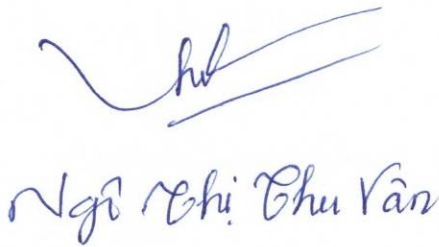 Ngô Thị Thu Vân